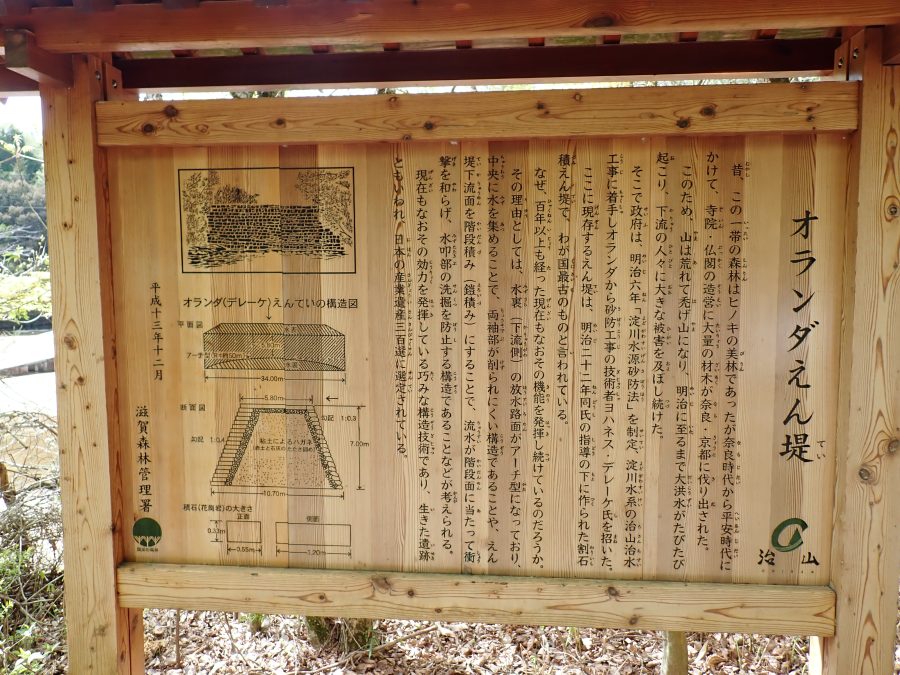 オランダえん堤
昔、この一帯の森林はヒノキの美林であったが奈良時代から平安時代に
かけて、寺院・仏閣の造営に大量の材木が奈良・京都に伐り出された。
このため、山は荒れて禿げ山になり、明治に至るまで大洪水がたびたび
起こり、下流の人々に大きな被害を及ぼし続けた。
そこで政府は、明治六年「淀川水源砂防法」を制定、淀川水系の治山治水
工事に着手しオランダから砂防工事の技術者ヨハネス・デレーケ氏を招いた。
ここに現存するえん堤は、明治二十二年同氏の指導の下に作られた割石
積えん堤で、わが国最古のものと言われている。
なぜ、百年以上も経った現在もなおその機能を発揮し続けているのだろうか。
その理由としては、水裏(下流側)の放水路面がアーチ型になっており、
中央に水を集めることで、両袖部が削られにくい構造であることや、えん
堤下流面を階段積み(鎧積み)にすることで、流水が階段面に当たって衝
撃を和らげ、水叩部の洗掘を防止する構造であることなどが考えられる。
現在もなおその効力を発揮している巧みな構造技術であり、生きた遺跡
ともいわれ、日本の産業遺産三百選に選定されている。
治山
オランダ(デレーケ)えんていの構造図
平面図
34.00m
断面図
5.80m
勾配 1:0.3
勾配 1:0.4
7.00m
粘土によるハガネ
10.70m
積石(花崗岩)の大きさ
正面
側面
0.33m
0.55m
1.20m
平成十三年十二月
滋賀森林管理署